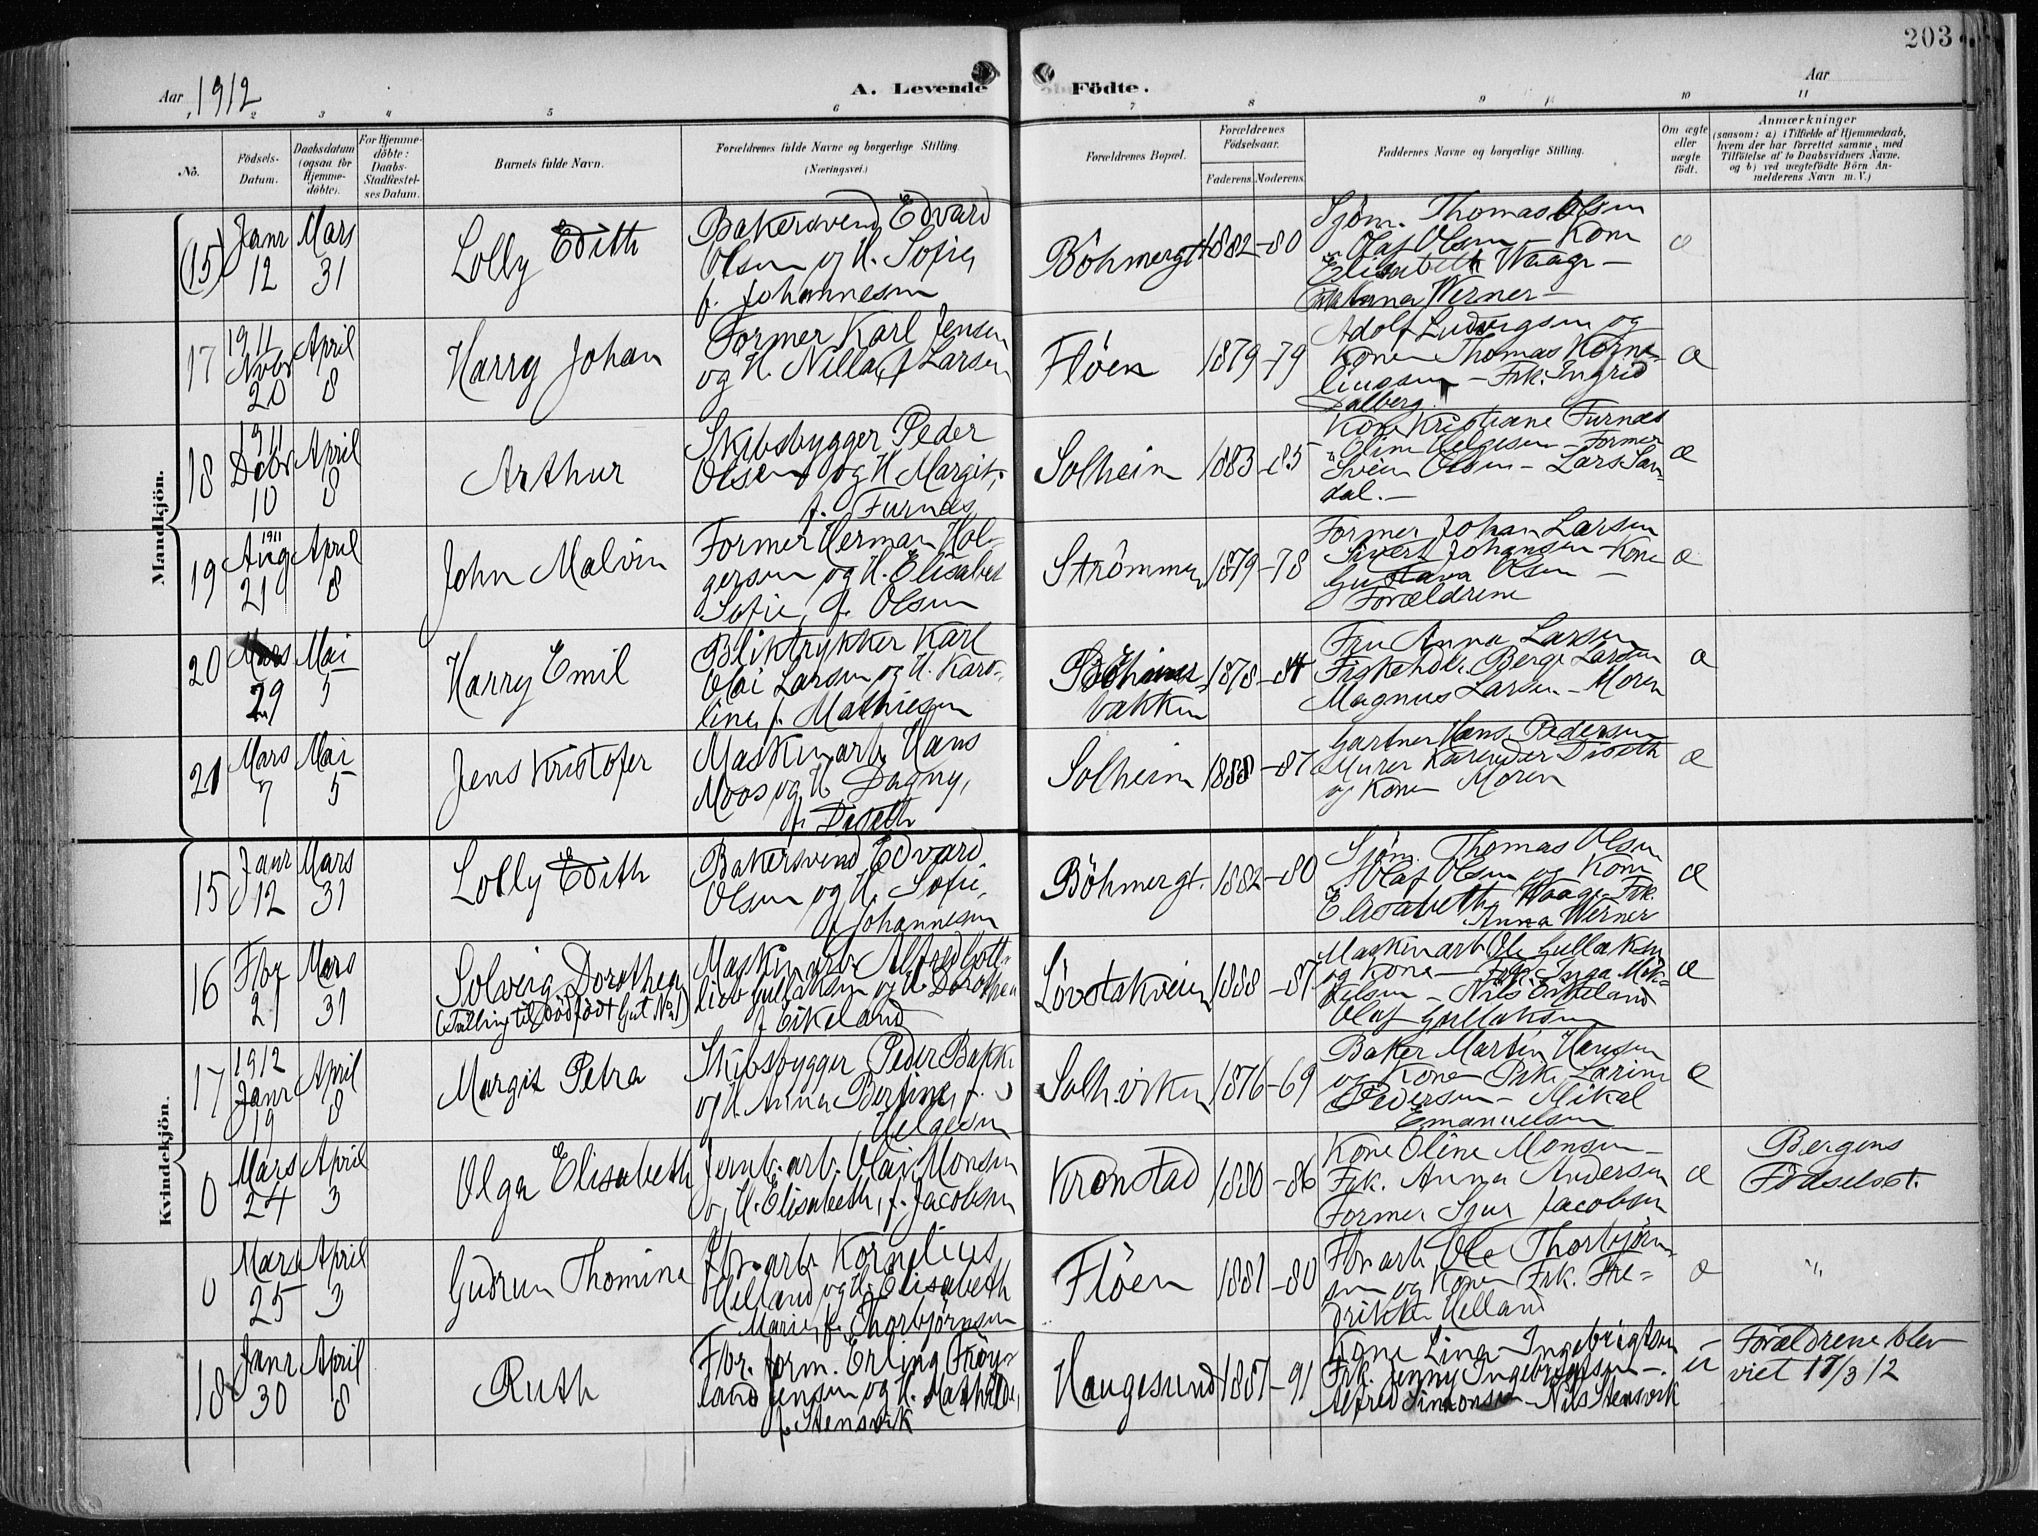 203
Aar 1912
A. Levende Födte.
Aar
1 2 3 4 5 6 7 8 9 10 11
No.
Födsels-Datum.
Daabsdatum (ogsaa for Hjemme-döbte).
For Hjemme-döbte: Daabs-Stadfæstel-ses Datum.
Barnets fulde Navn.
Forældrenes fulde Navne og borgerlige Stilling. (Næringsvei.)
Forældrenes Bopæl.
Forældrenes Födselsaar.
Faderens. Moderens.
Faddernes Navne og borgerlige Stilling.
Om ægte eller uægte födt.
Anmærkninger
(saasom: a) i Tilfælde af Hjemmedaab,
hvem der har forrettet samme, med
Tilföielse af to Daabsvidners Navne.
og b) ved uægtefödte Börn An-
melderens Navn m. V.)
Mandkjön.
(15) Janr 12 Mars 31 Lolly Edith
Bakersvend Edvard
Olsen og H. Sofie,
f. Johannesen
Böhmergt 1882-80
Sjöm. Thomas Olsen
" Olaf Olsen - Kone
Elisabeth Waage -
Frk Anna Werner -
æ
17 1911 Nvbr 20 April 8 Harry Johan
Former Karl Jensen
og H. Nilla f Larsen
Flöen 1879-79
Adolf Ludvigsen og
Kone Thomas Korne-
liussen - Frk. Ingrid
Dalberg.
æ
18 1911 Debr 10 April 8 Arthur
Skibsbygger Peder
Olsen og H Margit,
f. Furnes
Solheim 1883-85
Kone Kristiane Furnes
" Oline Helgesen - Former
Svein Olsen - Lars San-
dal. -
æ
19 1911 Aug 21 April 8 John Malvin
Former Herman Hol-
gersen og H. Elisabet
Sofie, f. Olsen
Strömmen 1879-78
Former Johan Larsen
Sivert Johansen - Kone
Gustava Olsen -
Forældrene
æ
20 Mars 29 Mai 5 Harry Emil
Bliktrykker Karl
Olai Larsen og H. Karo-
line, f. Mathiesen
Böhmer-
bakken 1878-84
Fru Anna Larsen
Fiskehdlr. Berge Larsen
Magnus Larsen - Moren
æ
21 Mars 7 Mai 5 Jens Kristofer
Maskinarb. Hans
Moos og H Dagny,
f. Diseth
Solheim 1888-87
Gartner Hans Pedersen
Murer Diseth
og Kone Moren
æ
Kvindekjön.
15 Janr 12 Mars 31 Lolly Edith
Bakersvend Edvard
Olsen og H. Sofie,
f Johannesen
Böhmergt. 1882-80
Sjöm. Thomas Olsen
" Olaf Olsen og Kone
Elisabeth Waage Frk.
Anna Werner
æ
16 Fbr 21 Mars 31 Solveig Dorothea
(Tvilling til Dödfödt Gut No 1)
Maskinarb Alfred Gott-
lieb Gullaksen og H Dorothea
f Eikeland
Lövstakveien 1888-87
Maskinarb Ole Gullaksen
og Kone - Frk. Inga Mik-
kelsen - Nils Eikeland
Olaf Gullaksen
æ
17 1912 Janr 19 April 8 Margit Petra
Skibsbygger Peder Bakke
og H Anna Bertine, f.
Helgesen
Solh.viken 1876-69
Baker Martin Hansen
og Kone Frk. Larine
Pedersen - Mikal
Emanuelsen
æ
0 Mars 24 April 3 Olga Elisabeth
Jernb. arb. Olai Monsen
o, H. Elisabeth, f. Jacobsen
Kronstad 1880-86
Kone Oline Monsen -
Frk. Anna Andersen
Former Sjur Jacobsen
æ
Bergens
Födselsst.
0 Mars 25 April 3 Gudrun Thomine
Fbr. arb. Kornelius
Helland og H. Elisabeth
Marie, f. Thorbjörnsen
Flöen 1881-80
Fbr arb Ole Thorbjörn-
sen og Kone Frk. Fre-
drikke Helland
æ
"
18 Janr 30 April 8 Ruth
Fbr. form. Erling Fröy-
land Jensen og H. Mathilde,
f. Stensvik
Haugesund 1887-91
Kone Lina Ingebrigtsen
Frk. Jenny Ingebrigtsen -
Alfred Simonsen - Nils Stensvik
Forældrene blev
viet 17/3 12